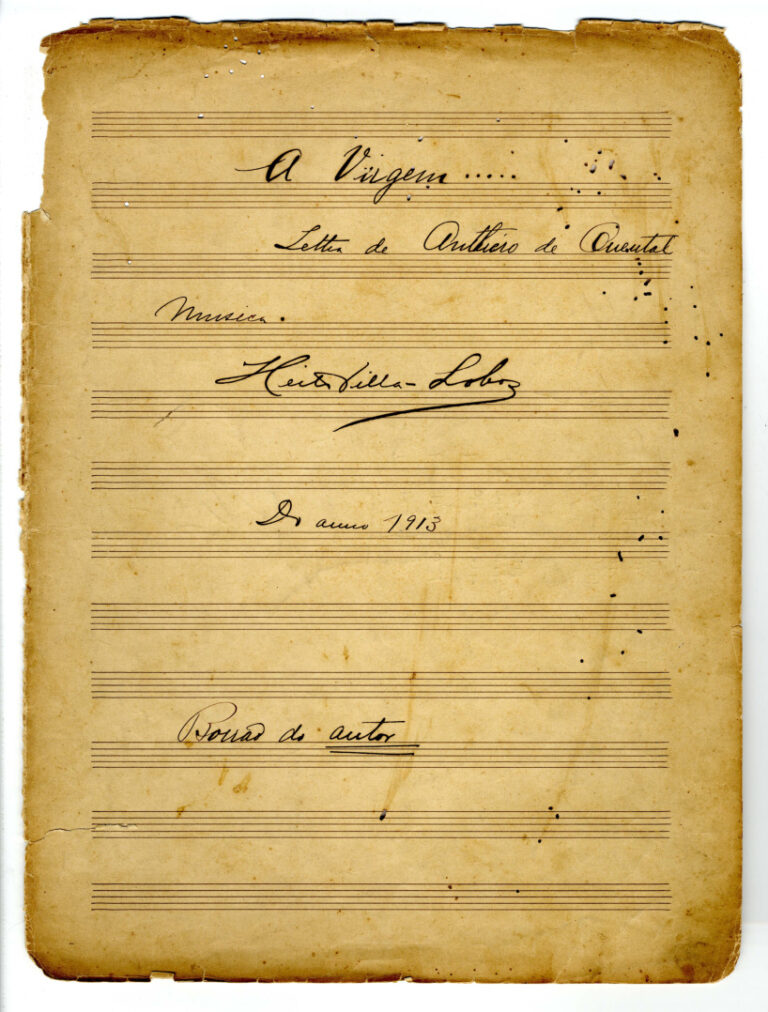 A Virgem .....
Lettra de Anthero de Quental
Musica.
Heitor Villa-Lobos
Do anno 1913
Borrão do autor